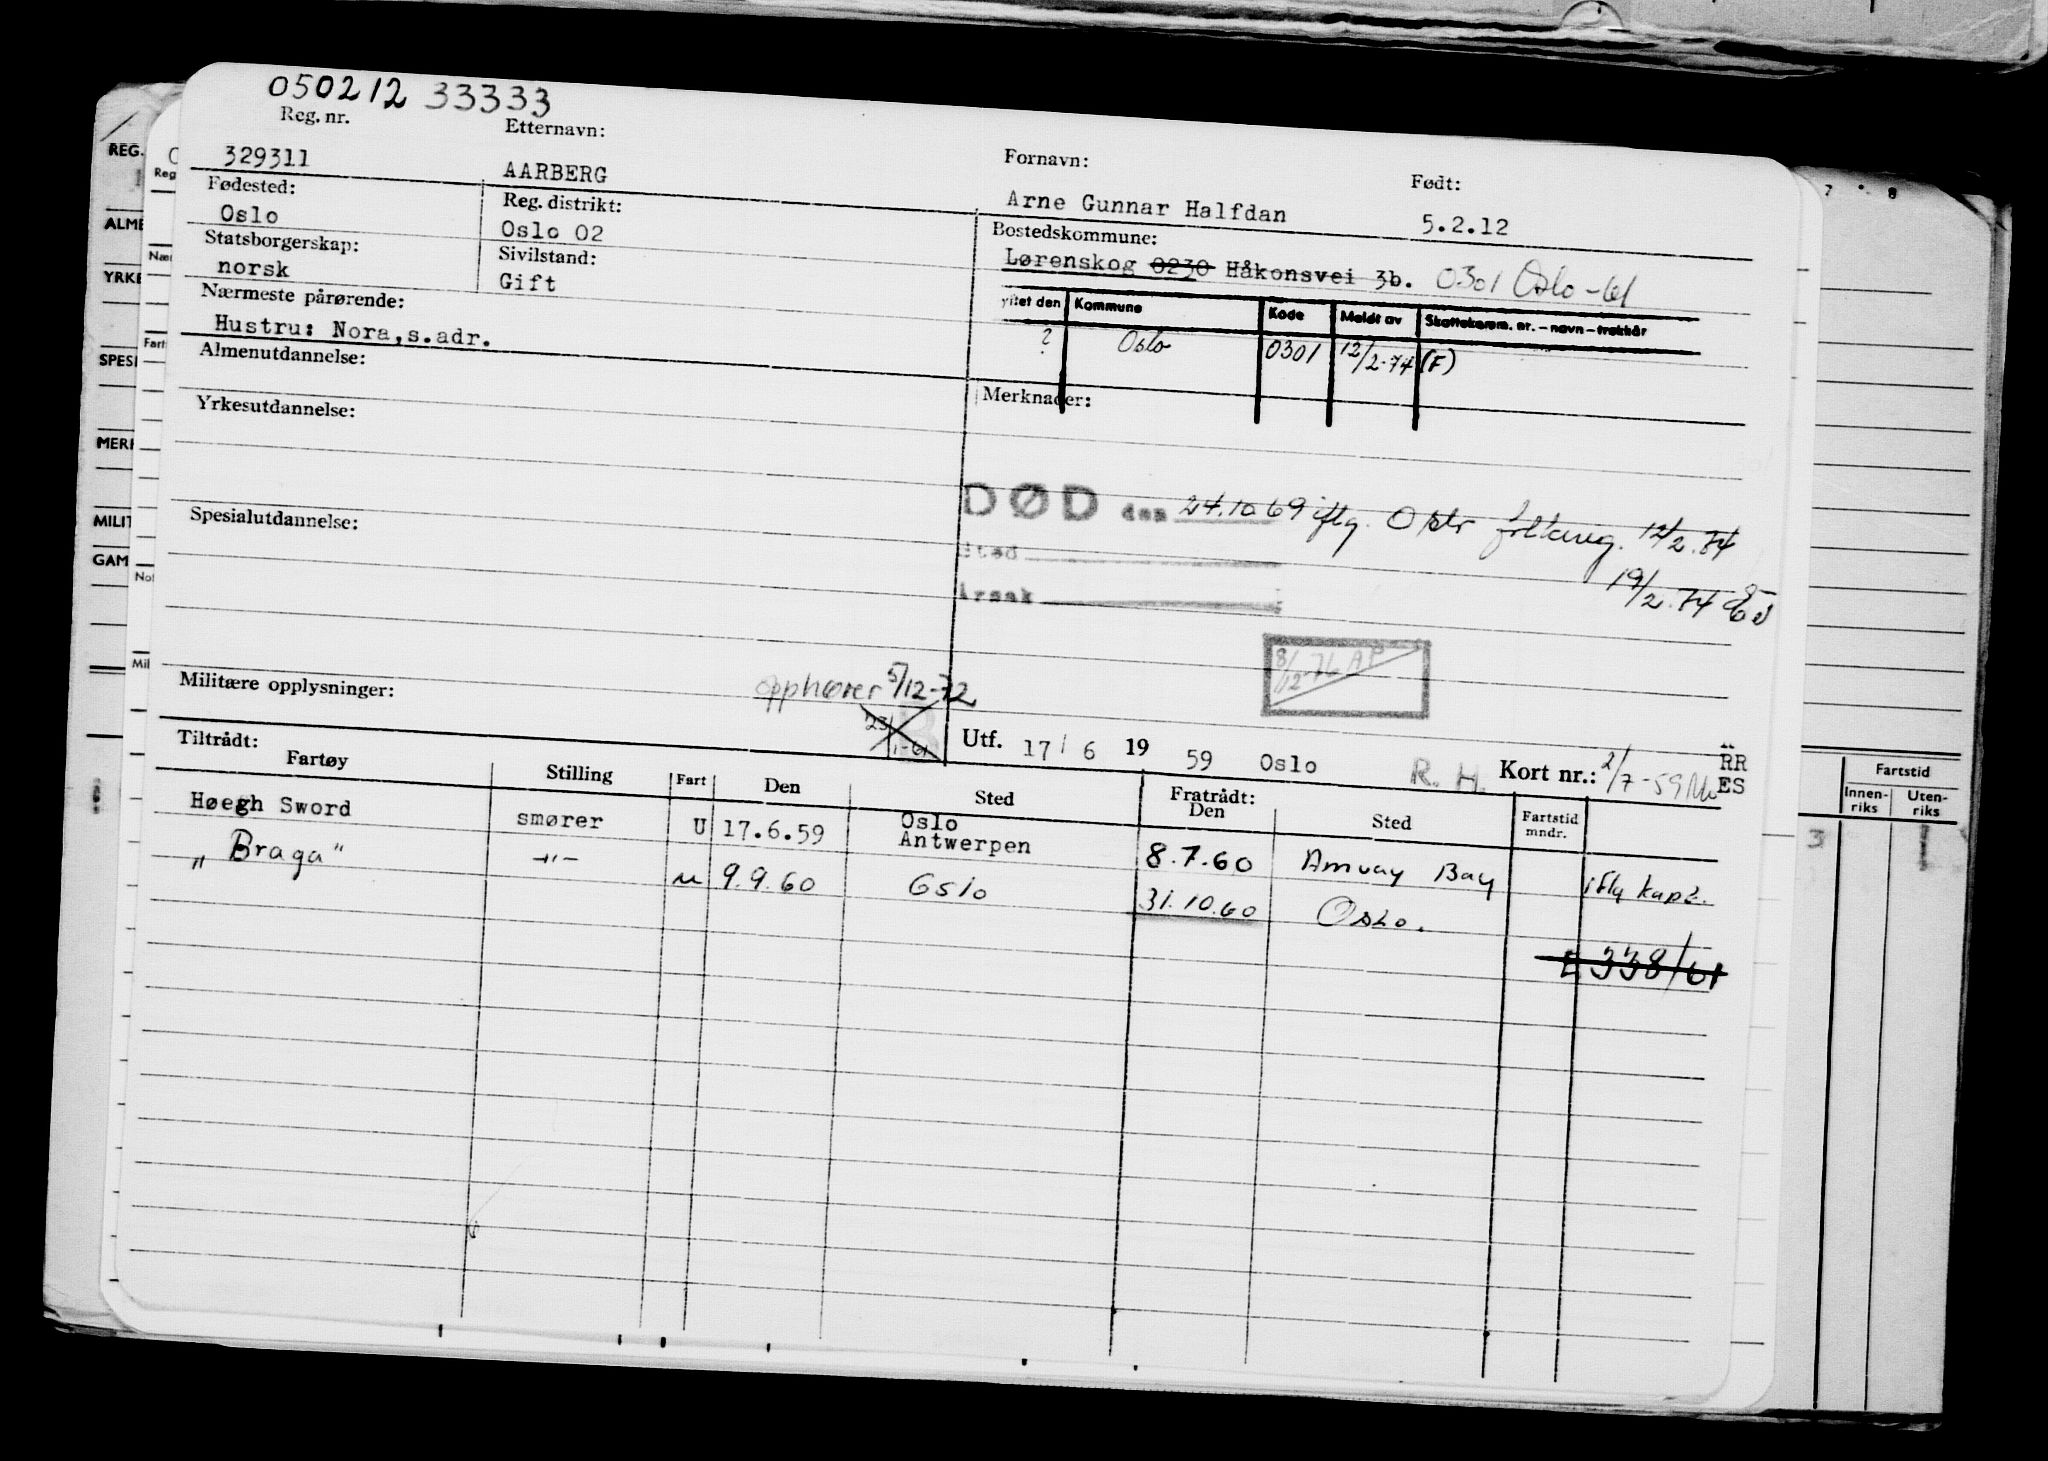 050212 33333
Reg. nr. Etternavn: Fornavn: Født:
329311 AARBERG Arne Gunnar Halfdan 5.2.12
Fødested: Reg. distrikt: Bostedskommune:
Oslo Oslo 02 Lørenskog 0230 Håkonsvei 3b. 0301 Oslo -61
Statsborgerskap: Sivilstand:
norsk Gift
Nærmeste pårørende:
Hustru: Nora,s.adr.
ytet den Kommune Kode Meldt av Skattekomm. nr. – navn – trekkår
? Oslo 0301 12/2-74 (F)
Almenutdannelse:
Merknader:
Yrkesutdannelse:
DØD den 24.10.69 iflg. Oslo folkereg. 12/2.74
Sted
19/2.74
Årsak
Spesialutdannelse:
8/12-76 AP
Militære opplysninger:
opphører 5/12-72
23/1-61
Utf. 17/6 1959 Oslo R. H. Kort nr.: 2/7-59
RR
ES
Tiltrådt: Fratrådt:
Fartøy Stilling Fart Den Sted Den Sted Fartstid mndr.
Høegh Sword smører U 17.6.59 Oslo Antwerpen 8.7.60 Amuay Bay iflg kapt.
„Braga" -"- u 9.9.60 Oslo 31.10.60 Oslo.
E 338/61
REG.
Reg
ALME
YRKE
Fart
SPESI
MERK
MILIT
GAM
Mil
7 8
Fartstid
Innen-riks Uten-riks
3